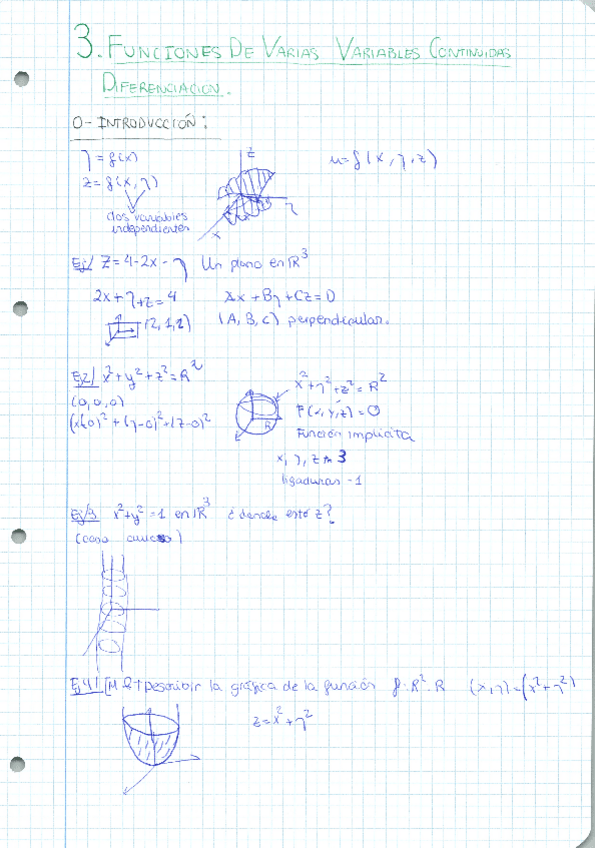 3. FUNCIONES DE VARIAS VARIABLES CONTINUIDAS
DIFERENCIACION.
0- INTRODUCCIÓN:
y = f(x)
z = f(x, y)
dos variables
independientes
z
y
x
u = f(x, y, z)
Ej/ z = 4-2x-y Un plano en ℝ³
2x+y+z=4 Ax + By + Cz = D
(2,1,1) (A, B, C) perpendicular.
Ej2/ x²+y²+z²=R²
(0,0,0)
(x-0)²+(y-0)²+(z-0)²
R
x²+y²+z²=R²
F(x, y, z) = 0
Función implícita
x, y, z 3
ligaduras -1
Ej/3 x²+y²=1 en ℝ³ ¿donde está z?
(como
Ej4/ [M&T] Describir la gráfica de la función f: R²·R (x,y)=(x²+y²)
z=x²+y²